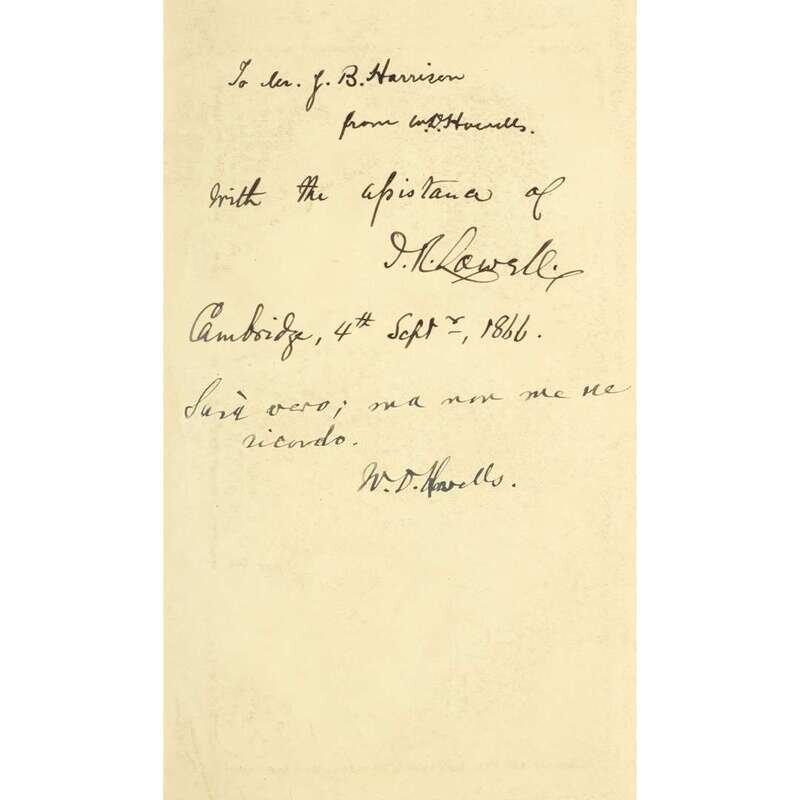 To Mr. J. B. Harrison
from W.D. Howells.
With the assistance of
J. R. Lowell.
Cambridge, 4th Septr, 1866.
Sarà vero; ma non me ne
ricordo.
W. D. Howells.